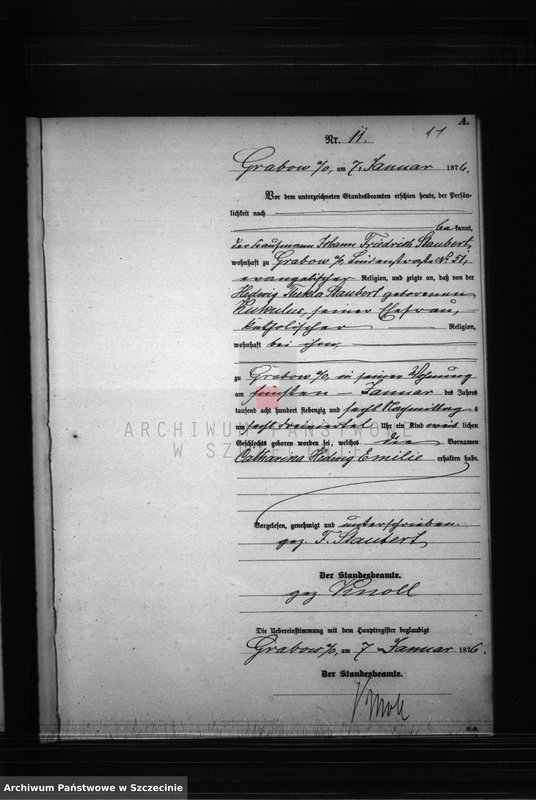 A.
Nr. 11.
11
Grabow a/O, am 7. Januar 1876.
Vor dem unterzeichneten Standesbeamten erschien heute, der Persön-
lichkeit nach
bekannt,
der Kaufmann Johann Friedrich Staubert,
wohnhaft zu Grabow a/O Lindenstraße No 51,
evangelischer Religion, und zeigte an, daß von der
Hedwig Thekla Staubert geborenen
Kukulus, seiner Ehefrau,
katholischer Religion,
wohnhaft bei ihm,
zu Grabow a/O, in seiner Wohnung
am fünften Januar des Jahres
tausend acht hundert siebenzig und sechs Nachmittag s
um sechs dreiviertel Uhr ein Kind weib lichen
Geschlechts geboren worden sei, welches die Vornamen
Catharina Hedwig Emilie erhalten habe.
Vorgelesen, genehmigt und unterschrieben.
gez. F. Staubert
Der Standesbeamte.
gez Knoll
Die Uebereinstimmung mit dem Hauptregister beglaubigt
Grabow a/O, am 7 ten Januar 1876.
Der Standesbeamte.
Knoll
ARCHIWUM PAŃSTWOWE
W SZCZECINIE
Archiwum Państwowe w Szczecinie